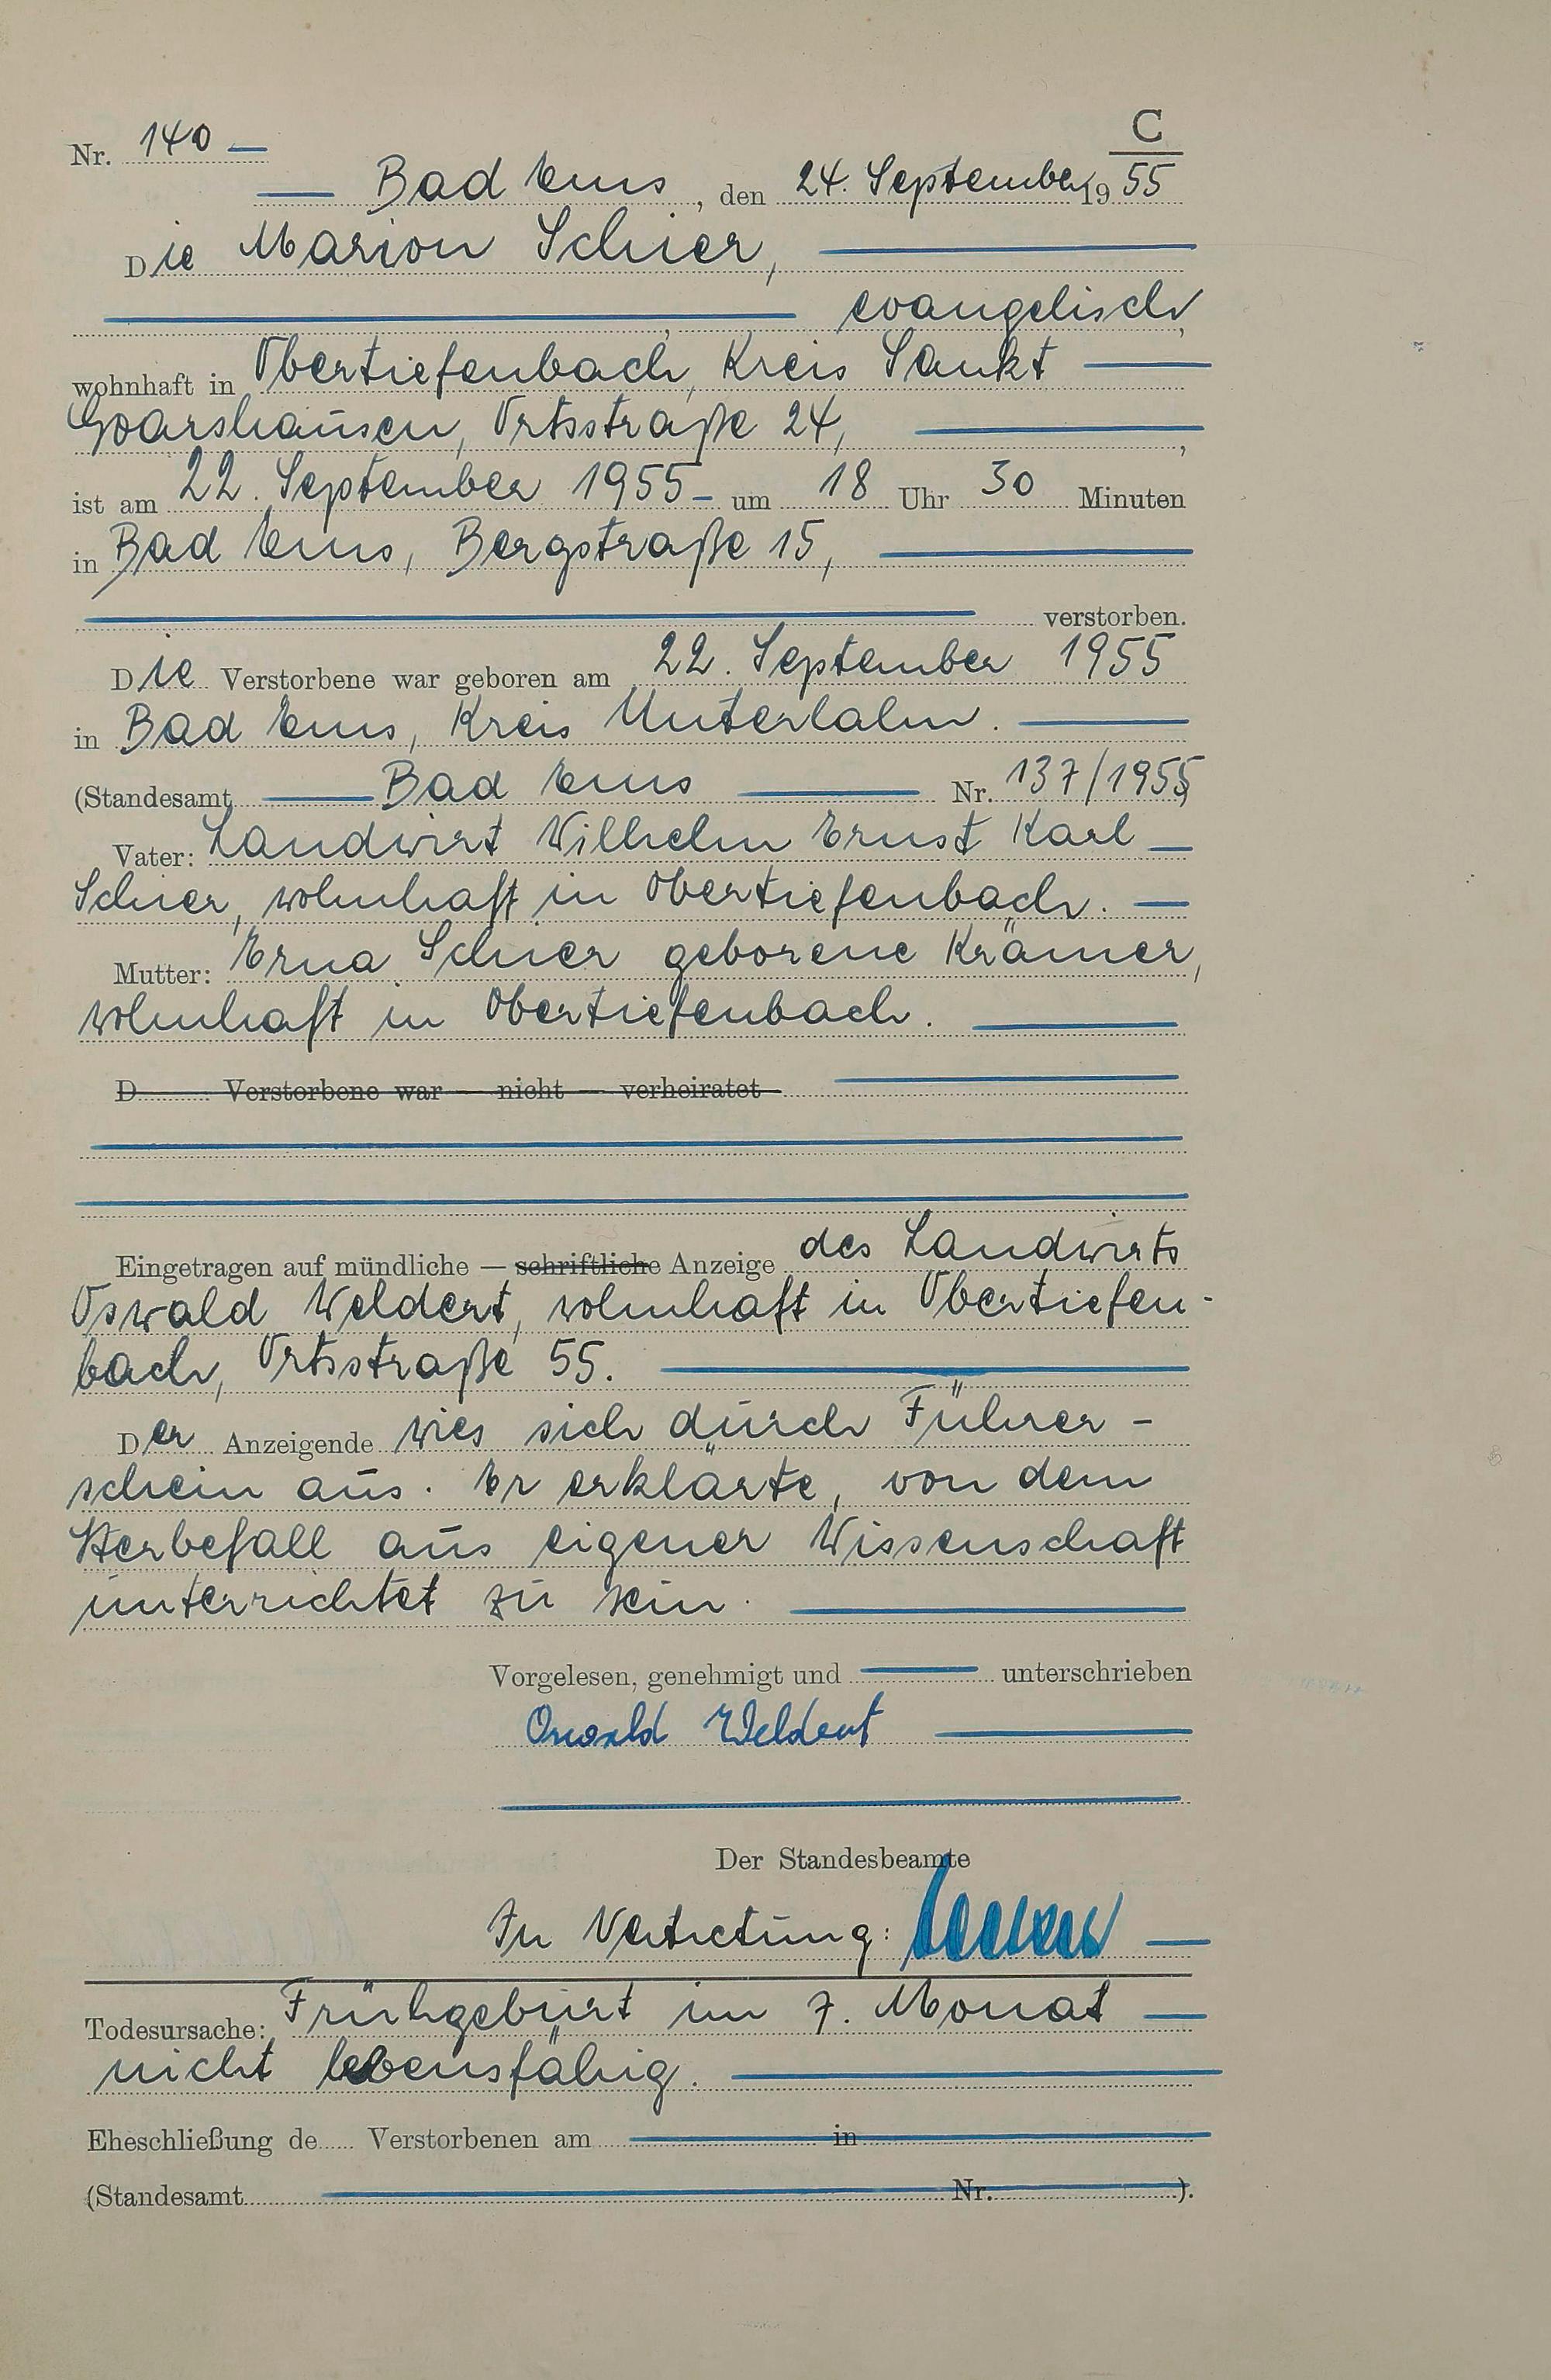 C
Nr. 140 —
— Bad Ems, den 24. September 1955
Die Marion Schier,
evangelisch,
wohnhaft in Obertiefenbach, Kreis Sankt
Goarshausen, Ortsstraße 24,
ist am 22. September 1955 – um 18 Uhr 30 Minuten
in Bad Ems, Bergstraße 15,
verstorben.
Die Verstorbene war geboren am 22. September 1955
in Bad Ems, Kreis Unterlahn.
(Standesamt — Bad Ems — Nr. 137/1955)
Vater: Landwirt Wilhelm Ernst Karl —
Schier, wohnhaft in Obertiefenbach. —
Mutter: Erna Schier geborene Krämer,
wohnhaft in Obertiefenbach.
D Verstorbene war — nicht — verheiratet
Eingetragen auf mündliche — schriftliche Anzeige des Landwirts
Oswald Weldert, wohnhaft in Obertiefen-
bach, Ortsstraße 55.
Der Anzeigende wies sich durch Führer-
schein aus. Er erklärte, von dem
Sterbefall aus eigener Wissenschaft
unterrichtet zu sein.
Vorgelesen, genehmigt und — unterschrieben
Oswald Weldert
Der Standesbeamte
In Vertretung:
Todesursache: Frühgeburt im 7. Monat —
nicht lebensfähig.
Eheschließung de Verstorbenen am in
(Standesamt Nr. ).